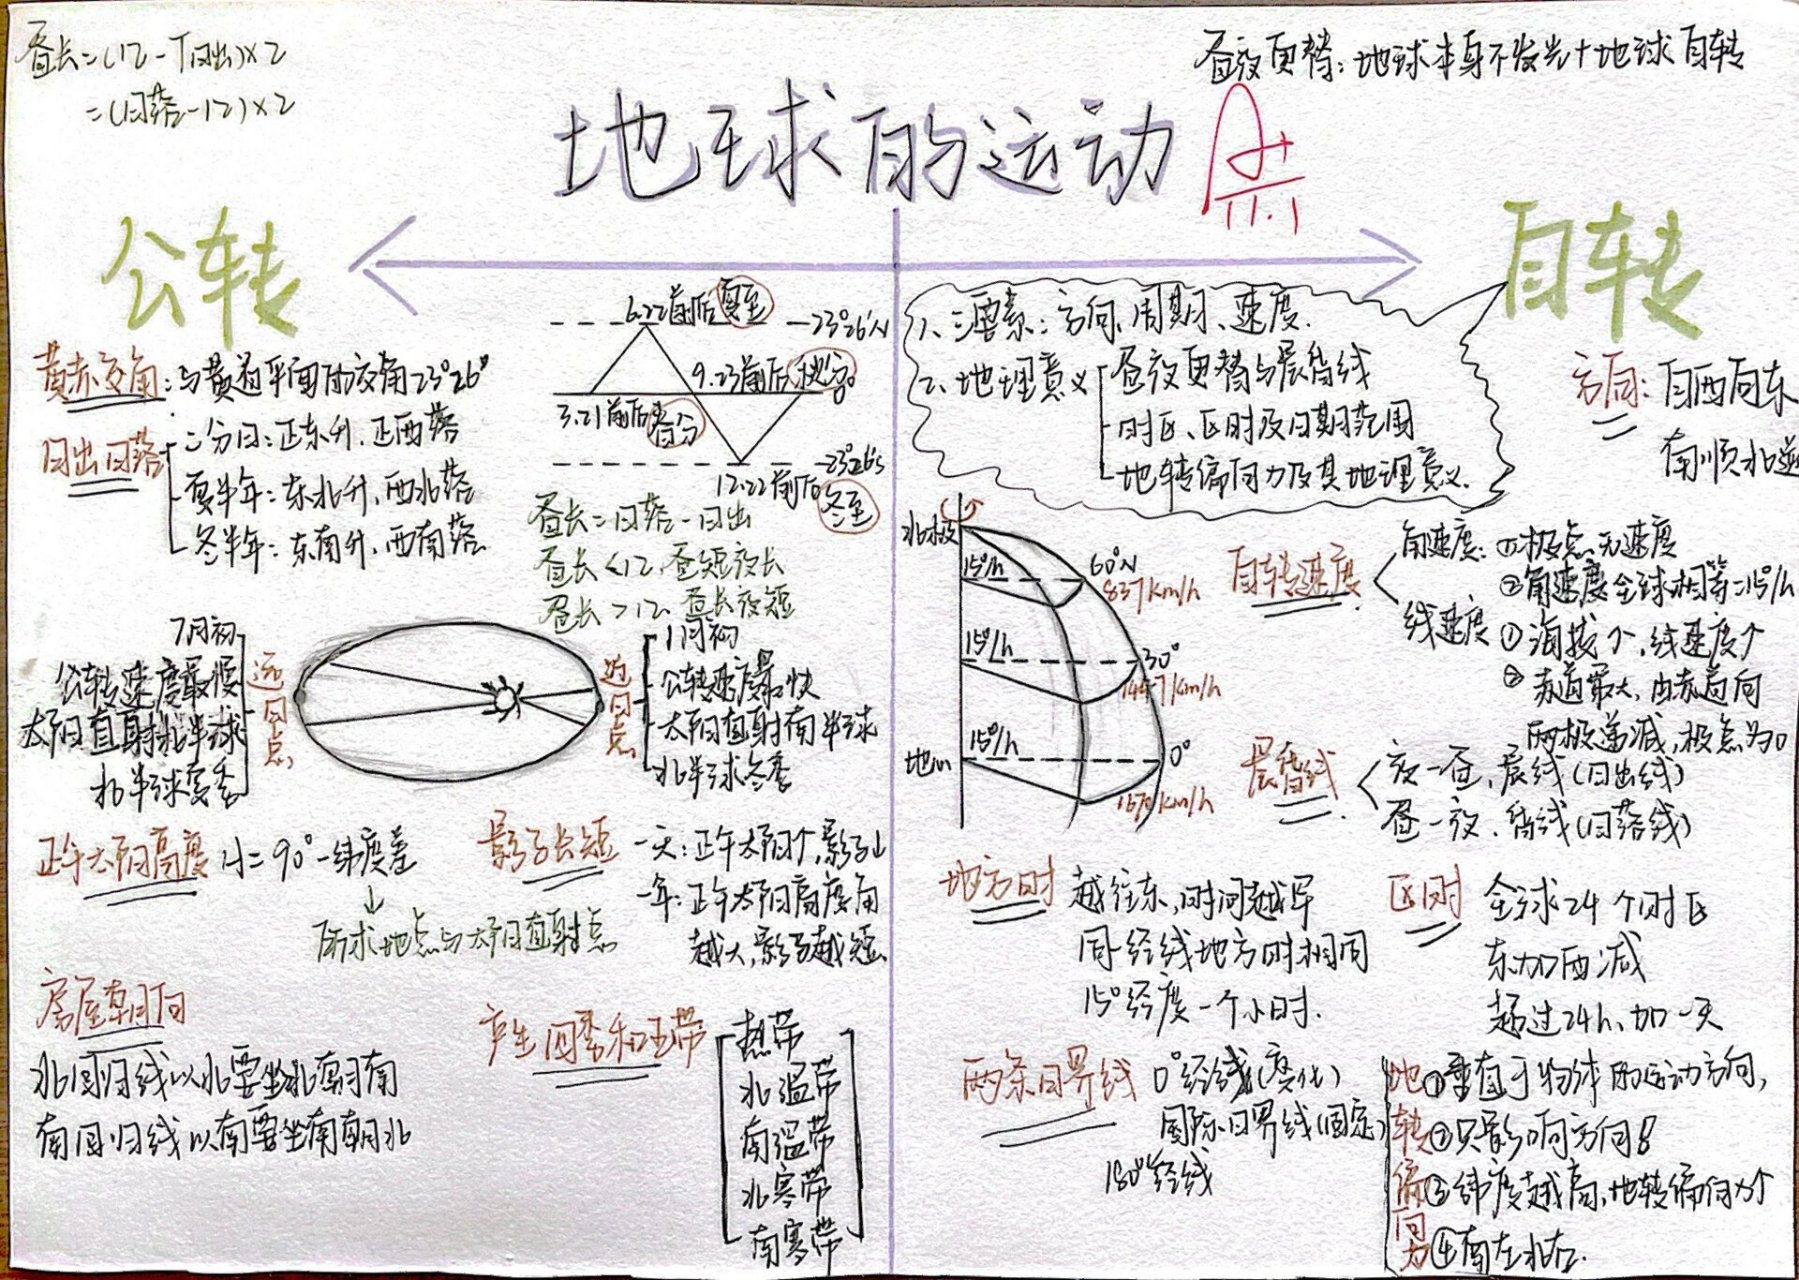 昼长=(12-T日出)×2
=(日落-12)×2
昼夜更替:地球本身不发光+地球自转
地球的运动
A+
11.1
公转
自转
黄赤交角:与黄道平面的交角23°26°
日出日落
二分日:正东升.正西落
夏半年:东北升.西北落
冬半年:东南升.西南落
6.22前后夏至
23°26′N
9.23前后秋分
0°
3.21前后春分
23°26′S
12.22前后冬至
昼长=日落-日出
昼长<12,昼短夜长
昼长>12,昼长夜短
7月初
公转速度最慢
太阳直射北半球
北半球夏季
远日点
近日点
1月初
公转速度最快
太阳直射南半球
北半球冬季
正午太阳高度 H=90°-纬度差
↓
所求地点与太阳直射点
影子长短
一天:正午太阳个,影子↓
一年:正午太阳高度角
越大,影子越短
房屋朝向
北回归线以北要坐北朝南
南回归线以南要坐南朝北
产生四季和五带
热带
北温带
南温带
北寒带
南寒带
1、三要素:方向、周期、速度.
2、地理意义
昼夜更替与晨昏线
时区、区时及日期范围
地转偏向力及其地理意义.
方向:自西向东
南顺北逆
北极
15°/h
60°N
837km/h
15°/h
30°
1447km/h
地心
15°/h
0°
1670km/h
自转速度
角速度:①极点无速度
②角速度全球相等=15°/h
线速度 ①海拔个,线速度个
② 赤道最大,由赤道向
两极递减,极点为0
晨昏线
夜一昼,晨线(日出线)
昼一夜.昏线(日落线)
地方时 越往东,时间越早
同经线地方时相同
15°经度一个小时.
区时 全球24个时区
东加西减
超过24h,加一天
两条日界线 0°经线(变化)
国际日界线(固定)
180°经线
地转偏向力
①垂直于物体的运动方向,
②只影响方向!
③纬度越高,地转偏向力个
④南左北右.